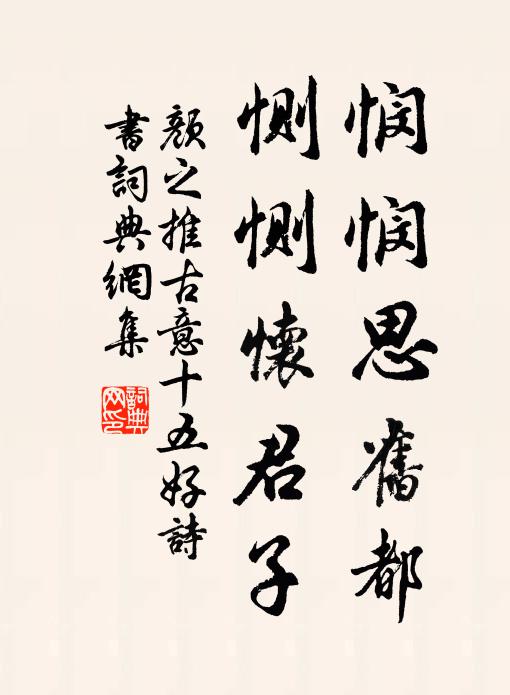 悯悯思舊都
惻惻懷君子
顏之推古意十五好詩
書詞典網集
詞典
网印